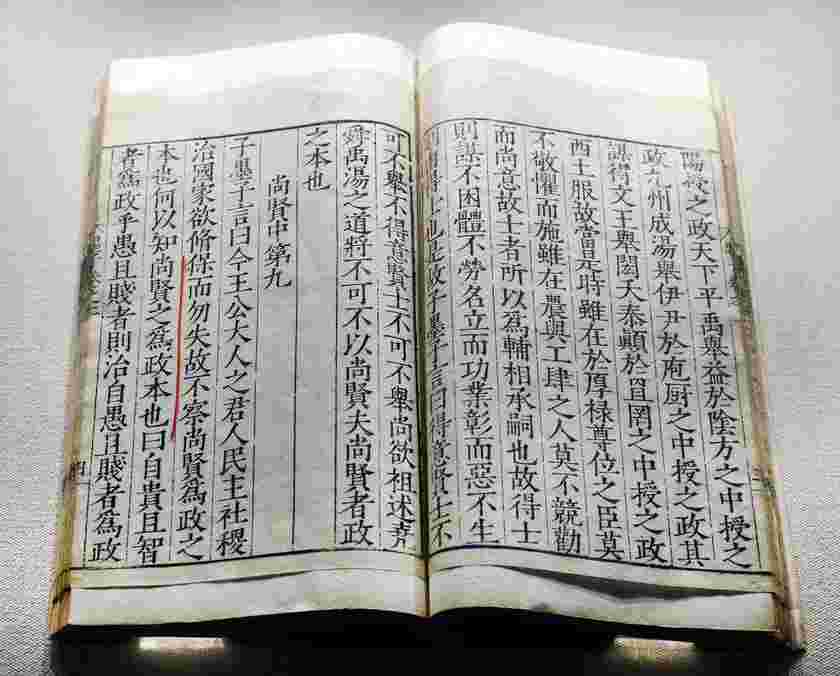 陽授之政天下平禹舉益於陰方之中授之
政九州成湯舉伊尹於庖厨之中授之政其
謀得文王舉閎夭泰顛於罝罔之中授之政
西土服故當是時雖在於厚祿尊位之臣莫
不敬懼而施雖在農與工肆之人莫不競勸
而尚意故士者所以爲輔相承嗣也故得士
則謀不困體不勞名立而功業彰而惡不生
得士也是故子墨子言曰得意賢士不
可不舉不得意賢士不可不舉尚欲祖述堯
舜禹湯之道將不可不以尚賢夫尚賢者政
之本也
尚賢中第九
子墨子言曰今王公大人之君人民主社稷
治國家欲脩保而勿失故不察尚賢爲政之
本也何以知尚賢之爲政本也曰自貴且智
者爲政乎愚且賤者則治自愚且賤者爲政